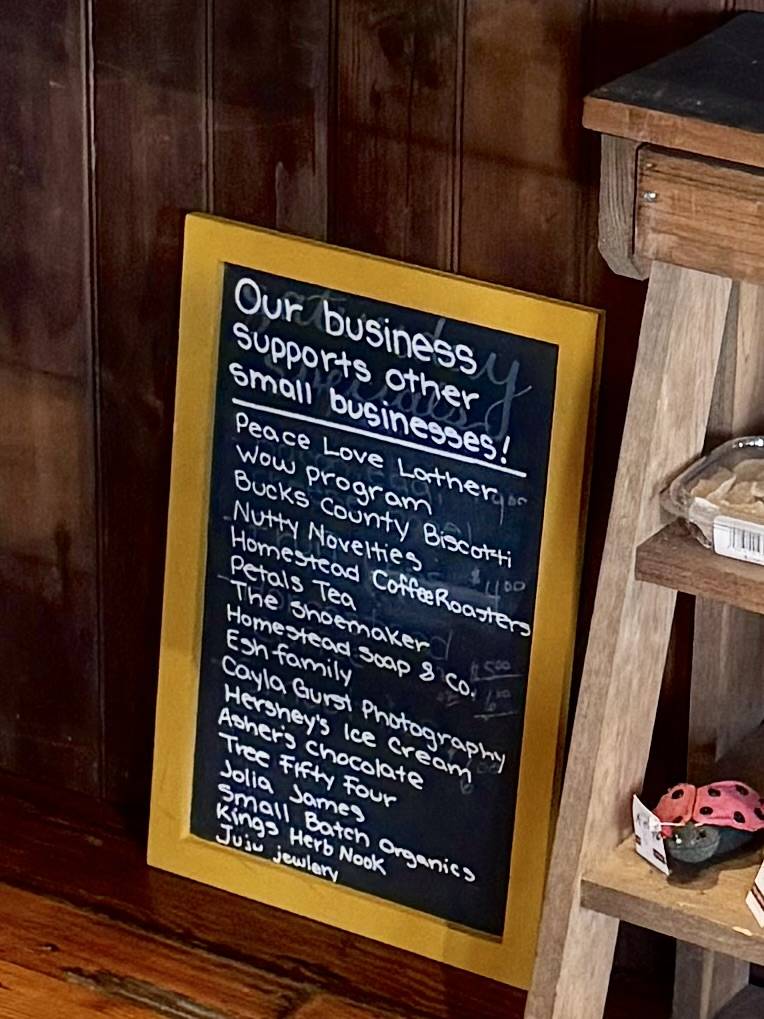 Our business
supports other
small businesses!
Peace Love Lather
Wow program
Bucks County Biscotti
Nutty Novelties
Homestead Coffee Roasters
Petals Tea
The Shoemaker
Homestead Soap & Co.
Esh family
Cayla Gursl Photography
Hershey's Ice Cream
Asher's Chocolate
Tree Fifty Four
Jolia James
Small Batch Organics
Kings Herb Nook
Juju jewlery